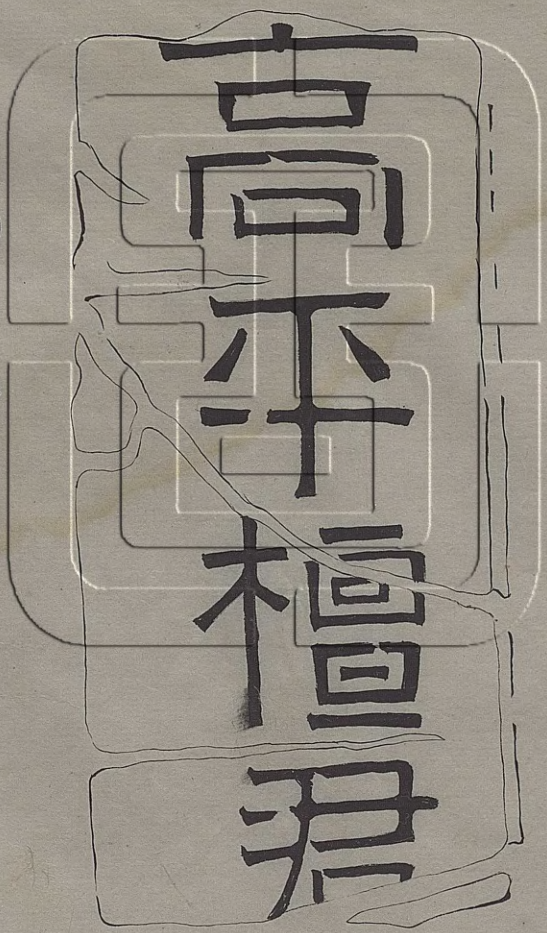 高平檀君